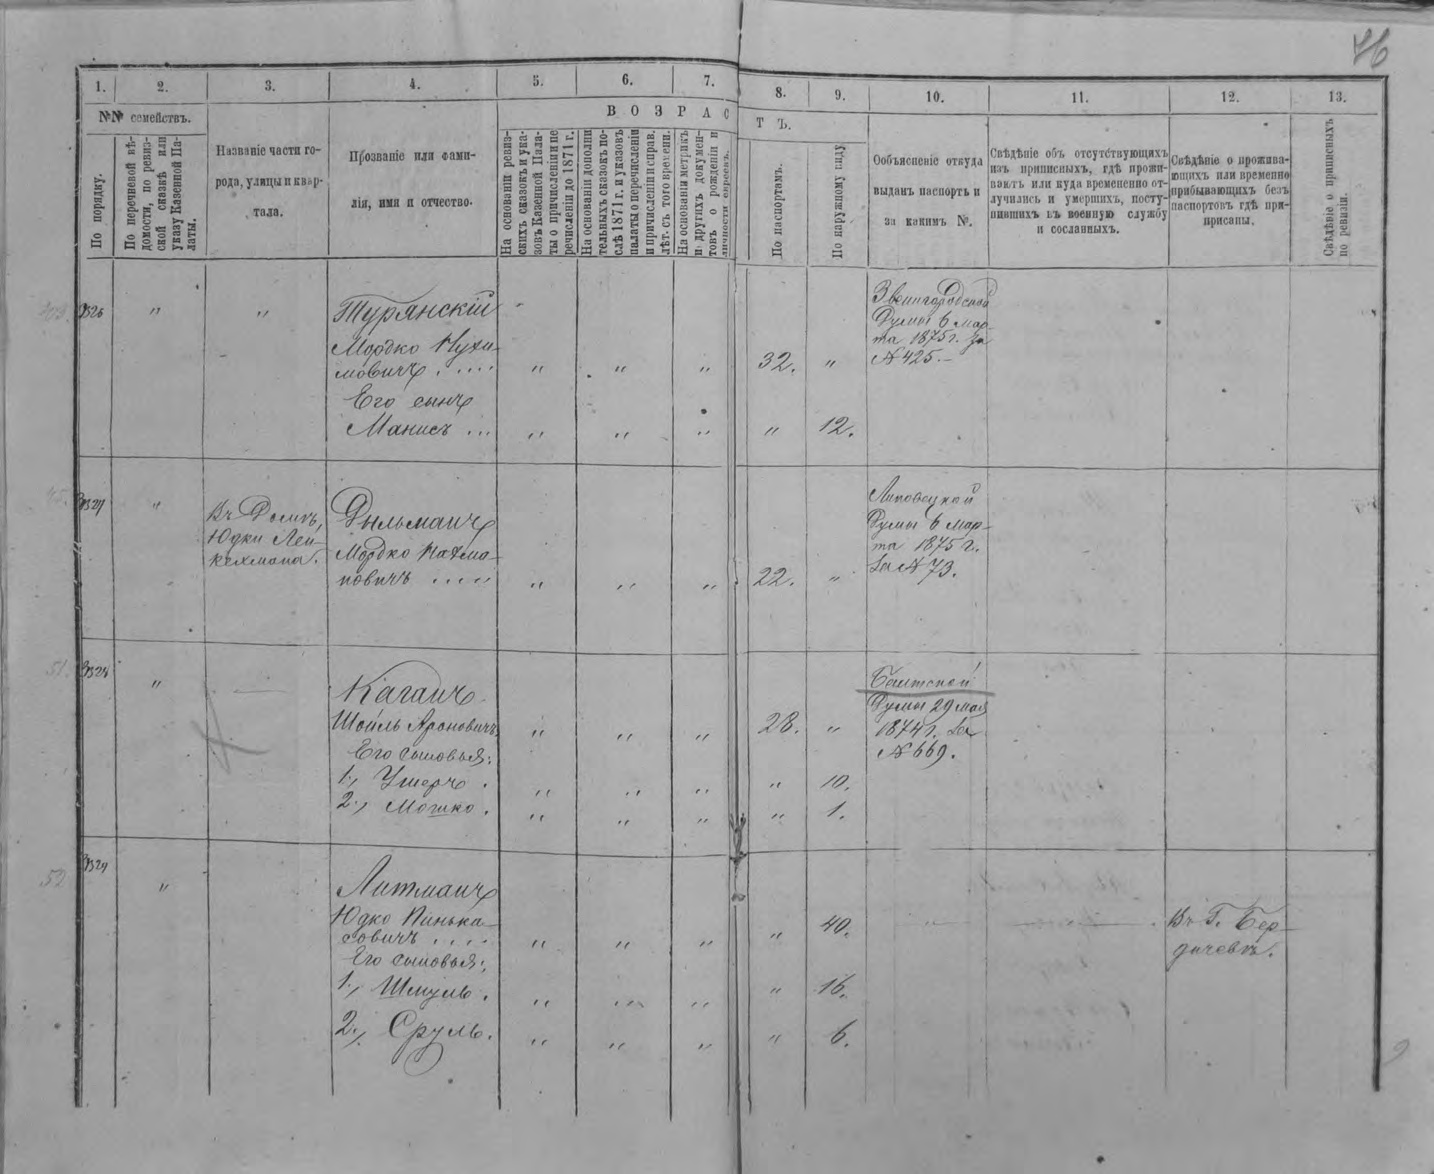 76
1.
2.
3.
4.
5.
6.
7.
8.
9.
10.
11.
12.
13.
№№ семействъ.
ВОЗРАС
ТЪ.
По порядку.
По перечневой вѣ-
домости, по ревиз-
ской сказкѣ или
указу Казенной Па-
латы.
Названіе части го-
рода, улицы и квар-
тала.
Прозваніе или фами-
лія, имя и отчество.
На основаніи ревиз-
скихъ сказокъ и ука-
зовъ Казенной Пала-
ты о причисленіи и пе
речисленіи до 1871 г.
На основаніи дополни
тельныхъ сказокъ по-
слѣ 1871 г. и указовъ
палаты о перечисленіи
и причисленіи и справ.
лѣт. съ того времени.
На основаніи метрикъ
и другихъ докумен-
товъ о рожденіи и
личности евреевъ.
По паспортамъ.
По наружному виду
Ообъясненіе откуда
выданъ паспортъ и
за какимъ №.
Свѣдѣніе объ отсутствующихъ
изъ приписныхъ, гдѣ прожи-
ваютъ или куда временно от-
лучились и умершихъ, посту-
пившихъ въ военную службу
и сосланныхъ.
Свѣдѣніе о прожива-
ющихъ или временно
прибывающихъ безъ
паспортовъ гдѣ при-
писаны.
Свѣдѣніе о приписныхъ
по ревизіи.
" " Турянскій
Мордко Нухи-
мовичъ . . . . . " " " 32. "
Звенигородской
Думы 6 Мар-
та 1875 г. за
№ 425.
Его сынъ
Манисъ ... " " " " 12.
" Въ Домѣ,
Юдки Лей-
кехмана.
Дыльманъ
Мордко Нахма-
новичъ . . . . . " " " 22. "
Липовецкой
Думы 6 Мар-
та 1875 г.
за № 73.
51.
" Каганъ
Шоиль Ароновичъ. " " " 28. "
Балтской
Думы 29 Мая
1874 г. за
№ 669.
Его сыновья:
1., Ушеръ . " " " " 10.
2., Мошко . " " " " 1.
52
" Литманъ
Юдко Пинька-
совичъ . . . . " " " " 40.
Въ Г. Бер-
дичевѣ.
Его сыновья:
1., Шмуль . " " " " 16.
2., Сруль. " " " " 6.